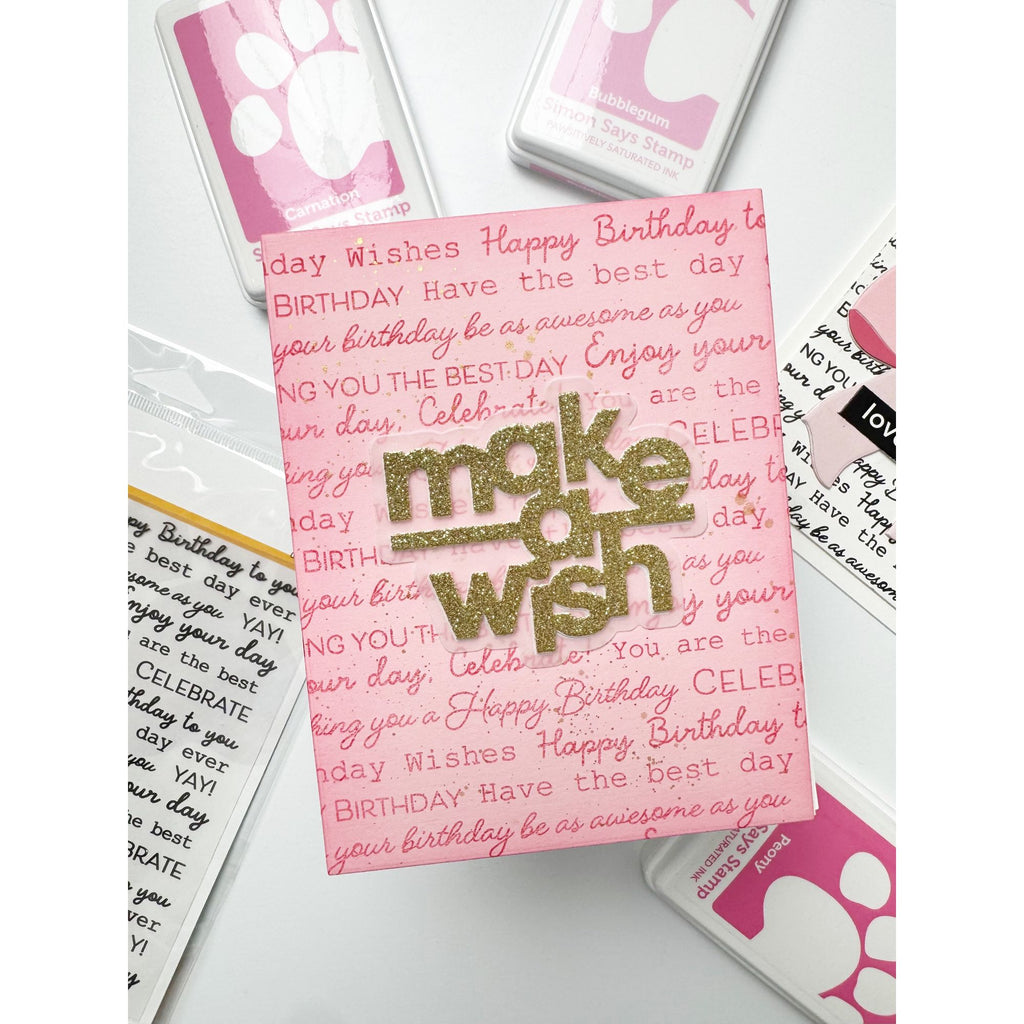 Carnation
Says Stamp
Bubblegum
Simon Says Stamp
PAWSITIVELY SATURATED INK
day Wishes Happy Birthday to
BIRTHDAY Have the best day
your birthday be as awesome as you
NG YOU THE BEST DAY Enjoy your
our day, Celebrate! You are the
hing you CELEB
day Wishes day
BIRTH Have
your birth as you
NG YOU TH Enjoy your
our day, Celebrate! You are the
hing you a Happy Birthday CELEB
day Wishes Happy Birthday t
BIRTHDAY Have the best day
your birthday be as awesome as you
make
a
wish
py Birthday to you
e best day ever
some as you YAY!
Enjoy your day
are the best
CELEBRATE
hday to you
day ever
you YAY!
our day
he best
BRATE
you
ver
Y!
NG YOU
our d
love
Happy
day Have the
hday be as awesom
Peony
Says Stamp
SATURATED INK